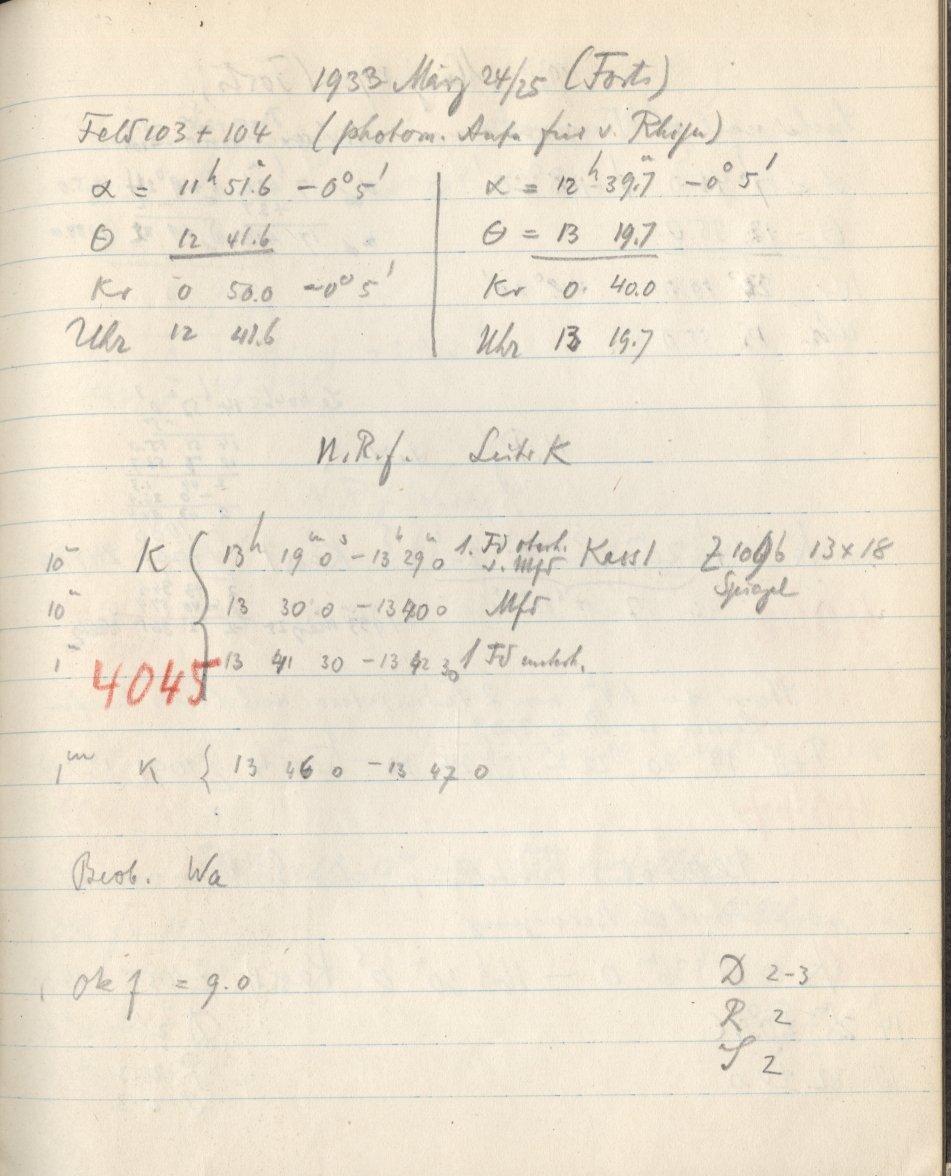 1933 März 24/25 (Forts)
Feld 103 + 104 (photom. Aufn für v. Rhijn)
α = 11ʰ 51.6ᵐ -0° 5'
Θ 12 41.6
Kr 0 50.0 -0° 5'
Uhr 12 41.6
α = 12ʰ 39.7ᵐ -0° 5'
Θ = 13 19.7
Kr 0 40.0
Uhr 13 19.7
N.R.f. Leitr K
10ᵐ K { 13ʰ 19ᵐ 0ˢ - 13ʰ 29ᵐ 0 1. Fd oberh. v. Mfd Kass1 Z 1096 13 x 18 Spiegel
10ᵐ 13 30 0 - 13 40 0 Mfd
1ᵐ 13 41 30 - 13 42 30 1 Fd unterh.
4045
1ᵐ K { 13 46 0 - 13 47 0
Beob. Wa
Ok f = 9.0
D 2-3
R 2
S 2